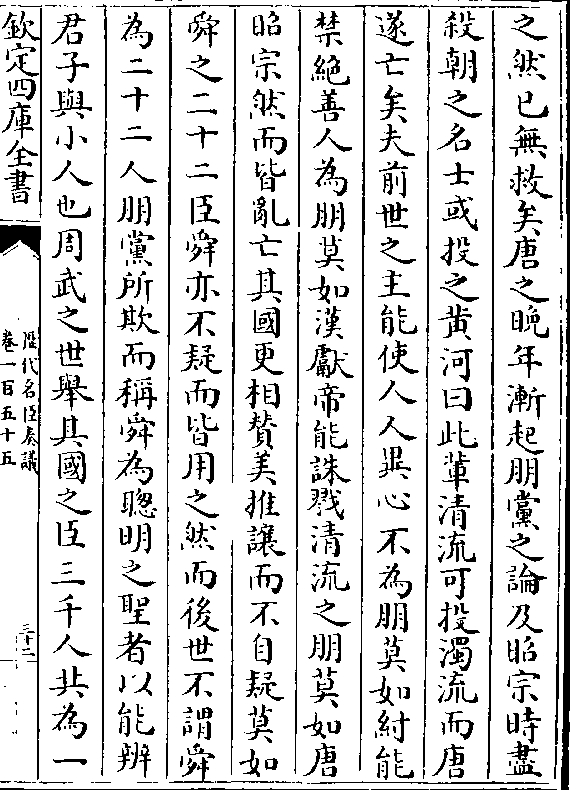 之然已無救矣唐之晚年漸起朋黨之論及昭宗時盡
殺朝之名士或投之黄河曰此輩清流可投濁流而唐
遂亡矣夫前世之主能使人人異心不為朋莫如紂能
禁絶善人為朋莫如漢獻帝能誅戮清流之朋莫如唐
昭宗然而皆亂亡其國更相賛美推讓而不自疑莫如
舜之二十二臣舜亦不疑而皆用之然而後世不謂舜
為二十二人朋黨所欺而稱舜為聰明之聖者以能辨
君子與小人也周武之世舉其國之臣三千人共為一
欽定四庫全書
歴代名臣奏議
卷一百五十五
三十二